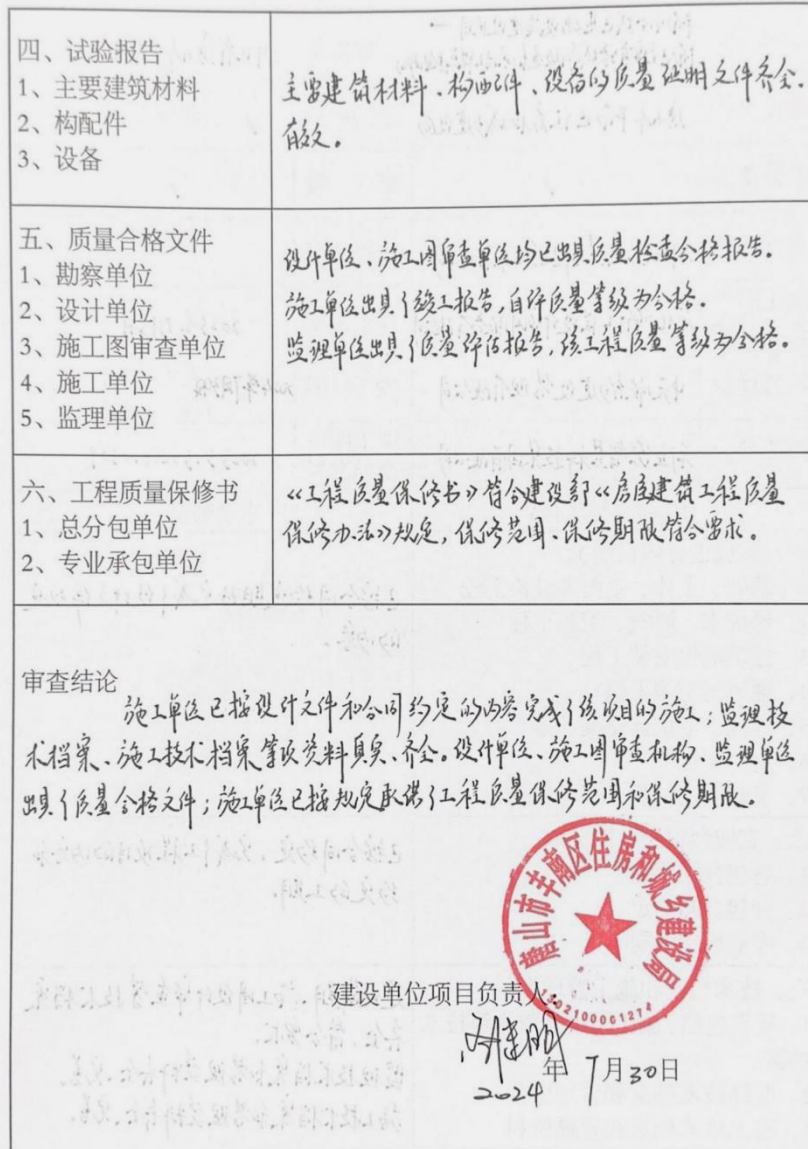 四、试验报告
1、主要建筑材料
2、构配件
3、设备
主要建筑材料、构配件、设备的质量证明文件齐全.
有效。
五、质量合格文件
1、勘察单位
2、设计单位
3、施工图审查单位
4、施工单位
5、监理单位
设计单位、施工图审查单位均已出具质量检查合格报告。
施工单位出具了竣工报告,自评质量等级为合格。
监理单位出具了质量评估报告,该工程质量等级为合格。
六、工程质量保修书
1、总分包单位
2、专业承包单位
《工程质量保修书》符合建设部《房屋建筑工程质量
保修办法》规定,保修范围、保修期限符合要求。
审查结论
施工单位已按设计文件和合同约定的内容完成了该项目的施工;监理技
术档案、施工技术档案等改资料真实、齐全。设计单位、施工图审查机构、监理单位
出具了质量合格文件;施工单位已按规定承诺了工程质量保修范围和保修期限。
唐山市丰南区住房和城乡建设局
1302100061274
建设单位项目负责人
2024年7月30日